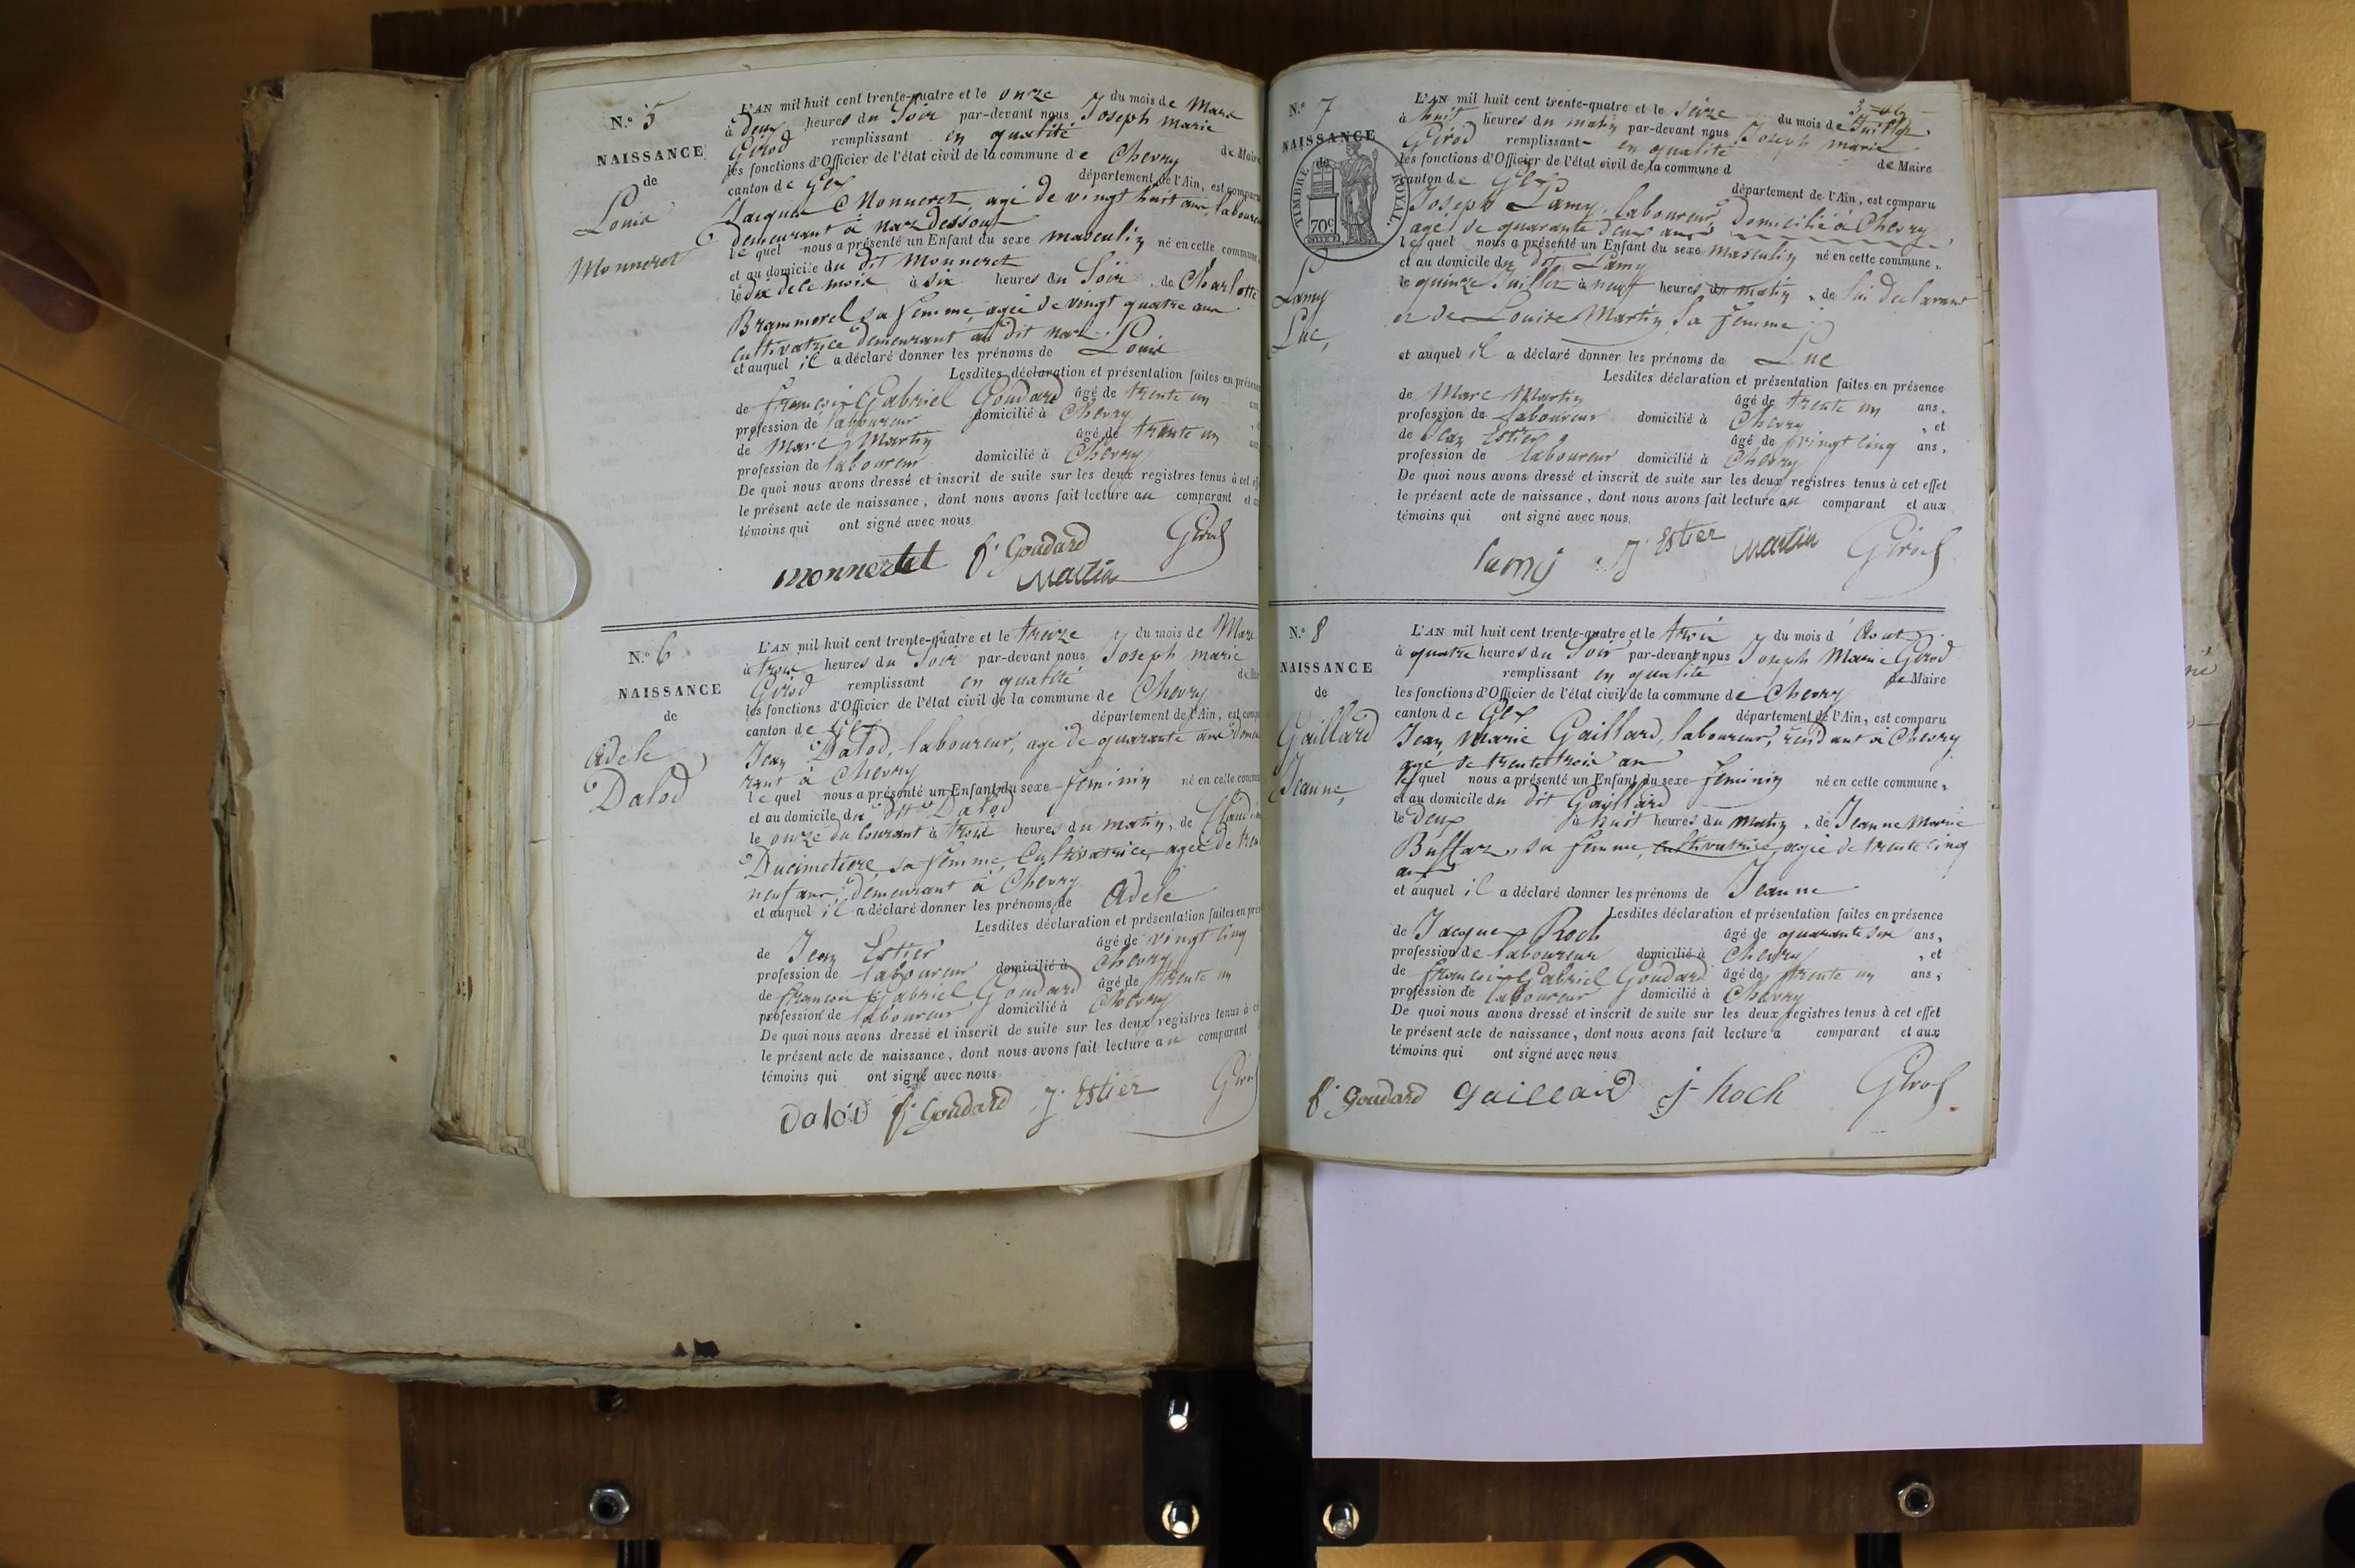 N.º 5
NAISSANCE
de
Louis
Monneret
L'AN mil huit cent trente-quatre et le onze du mois de Mars
à deux heures du Soir par-devant nous Joseph marie
Girod remplissant en qualité de Maire
les fonctions d'Officier de l'état civil de la commune de Chevry
canton de Gex département de l'Ain, est comparu
Jacques Monneret, agé de vingt huit ans, laboureur
demeurant à naz dessous
lequel nous a présenté un Enfant du sexe masculin né en cette commune,
et au domicile du dit Monneret
le dix de ce mois à six heures du Soir, de Charlotte
Brammerel sa femme, agée de vingt quatre ans
cultivatrice demeurant au dit naz
et auquel il a déclaré donner les prénoms de Louis
Lesdites déclaration et présentation faites en présence
de françois Gabriel Goudard âgé de trente un ans,
profession de laboureur domicilié à Chevry
de Marc Martin âgé de trente un ans
profession de laboureur domicilié à Chevry
De quoi nous avons dressé et inscrit de suite sur les deux registres tenus à cet eff
le présent acte de naissance, dont nous avons fait lecture au comparant et au
témoins qui ont signé avec nous
monneret f. Goudard Girod
Martin
N.º 6
NAISSANCE
de
Adele
Dalod
L'AN mil huit cent trente-quatre et le treize du mois de Mars
à trois heures du Soir par-devant nous Joseph marie
Girod remplissant en qualité de Mai
les fonctions d'Officier de l'état civil de la commune de Chevry
canton de Gex département de l'Ain, est comp
Jean Dalod, laboureur, agé de quarante ans demeu
rant à Chevry
lequel nous a présenté un Enfant du sexe feminin né en cette commu
et au domicile du dit Dalod
le onze du courant à trois heures du matin, de Claudin
Ducimetiere sa femme Cultivatrice, agée de tren
neuf ans, demeurant à Chevry
et auquel il a déclaré donner les prénoms de Adele
Lesdites déclaration et présentation faites en prés
de Jean Estier âgé de vingt cinq
profession de laboureur domicilié à Chevry
de françois Gabriel Goudard âgé de trente un
profession de laboureur domicilié à Chevry
De quoi nous avons dressé et inscrit de suite sur les deux registres tenus à ce
le présent acte de naissance, dont nous avons fait lecture au comparant
témoins qui ont signé avec nous
Dalod f. Goudard J. Estier Girod
N.º 7
NAISSANCE
de
TIMBRE ROYAL
70c
Lamy
Luc,
L'AN mil huit cent trente-quatre et le Seize du mois de Juillet
à huit heures du matin par-devant nous Joseph marie
Girod remplissant en qualité de Maire
les fonctions d'Officier de l'état civil de la commune d
canton de Gex département de l'Ain, est comparu
Joseph Lamy, laboureur, Domicilié à Chevry
agé de quarante deux ans
lequel nous a présenté un Enfant du sexe masculin né en cette commune,
et au domicile du dit Lamy
le quinze Juillet à neuf heures du matin, de lui declarant
et de Louise Martin sa femme
et auquel il a déclaré donner les prénoms de Luc
Lesdites déclaration et présentation faites en présence
de Marc Martin âgé de trente un ans,
profession de laboureur domicilié à Chevry, et
de Jean Estier âgé de vingt cinq ans,
profession de laboureur domicilié à Chevry
De quoi nous avons dressé et inscrit de suite sur les deux registres tenus à cet effet
le présent acte de naissance, dont nous avons fait lecture au comparant et aux
témoins qui ont signé avec nous
lamy J. Estier Martin Girod
N.º 8
NAISSANCE
de
Gaillard
Jeanne,
L'AN mil huit cent trente-quatre et le trois du mois d'Aout
à quatre heures du Soir par-devant nous Joseph Marie Girod
remplissant en qualité de Maire
les fonctions d'Officier de l'état civil de la commune de Chevry
canton de Gex département de l'Ain, est comparu
Jean Marie Gaillard, laboureur, residant à Chevry
agé de trente trois ans
lequel nous a présenté un Enfant du sexe feminin né en cette commune,
et au domicile du dit Gaillard
le deux à huit heures du matin, de Jeanne Marie
Buffaz, sa femme, cultivatrice, agée de trente cinq
ans
et auquel il a déclaré donner les prénoms de Jeanne
Lesdites déclaration et présentation faites en présence
de Jacques Roch âgé de quarante six ans,
profession de laboureur domicilié à Chevry, et
de françois Gabriel Goudard âgé de trente un ans,
profession de laboureur domicilié à Chevry
De quoi nous avons dressé et inscrit de suite sur les deux registres tenus à cet effet
le présent acte de naissance, dont nous avons fait lecture a comparant et aux
témoins qui ont signé avec nous
f. Goudard gaillard j roch Girod